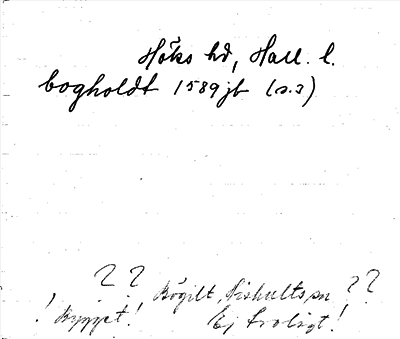 Höks hd, Hall. l.
bogholdt 1589 jb (s. 3)
? ? Bögilt, Hishults sn ??
! Bygget! Ej troligt!